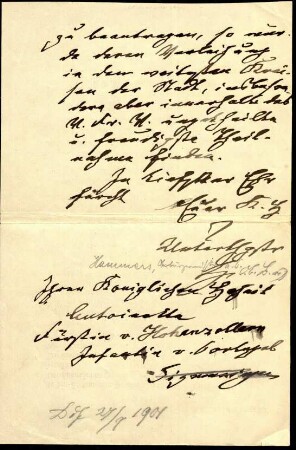 zu beantragen, so wür-
de deren Verleihung
in den weitesten Krei-
sen der Stadt, insbeson-
dere aber innerhalb des
V. Fr. V. ungetheilte
u. freudigste Theil-
nahme finden.
In tiefster Ehr-
furcht
Euer K. H.
Unterthgstr
Hammers,
Ihrer Königlichen Hoheit
Antoinette
Fürstin v. Hohenzollern
Infantin v. Portugal
Sigmaringen
1901